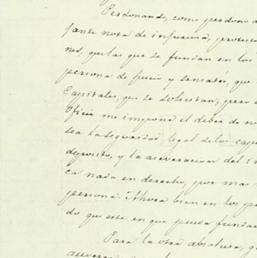 Perdonando, como perdono a
jante nota de infuria, protesta
nes, que las que se fundan en los
persona de juicio y sensatez que
Capitales, que se solicitan; pero e
Oficio me impone el deber de no
sea la seguridad legal de los cap
deposito, y la aseveracion del in
ca nada en derecho, por mas
persona. Ahora bien en los pa
do que este en que pueda fundar
Para la otra absoluta, q
aseverar